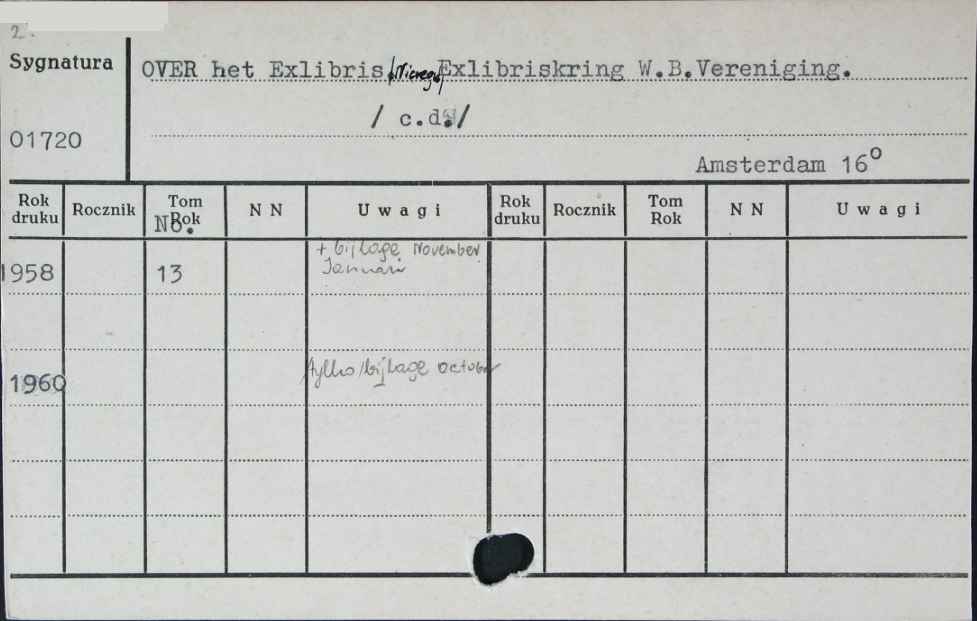 2.
Sygnatura
OVER het Exlibris / Exlibriskring W.B.Vereniging.
/ c.d./
01720
Amsterdam 16⁰
Rok druku Rocznik Tom Rok No. N N Uwagi Rok druku Rocznik Tom Rok N N Uwagi
1958 13 + bijlage November
Januari
1960 /tylko/bijlage october